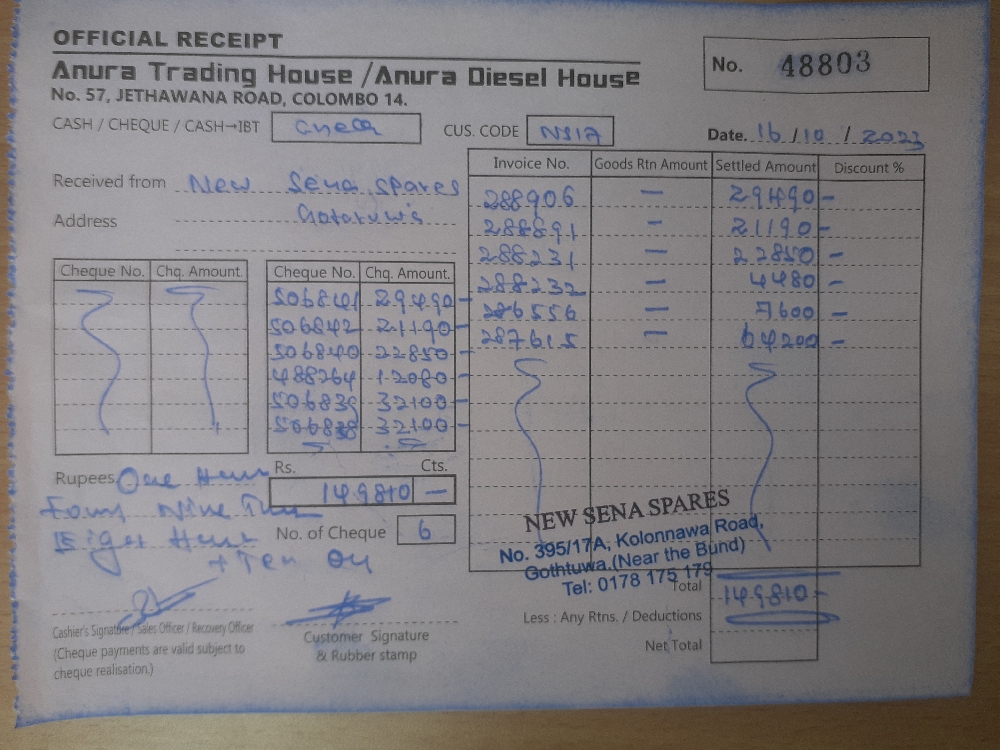 OFFICIAL RECEIPT
Anura Trading House / Anura Diesel House
No. 57, JETHAWANA ROAD, COLOMBO 14.
No. 48803
CASH / CHEQUE / CASH→IBT
CUS. CODE NS17
Date. 16 / 10 / 2023
Received from New Sena Spares
Address
Cheque No. Chq. Amount.
Cheque No. Chq. Amount.
506841 29490 -
506842 21190 -
506840 22850 -
488264 12080 -
506839 32100 -
506838 32100 -
Invoice No. Goods Rtn Amount Settled Amount Discount %
288906 — 29490 -
288891 — 21190 -
288231 — 22850 -
288232 — 4480 -
286556 — 7600 -
287615 — 64200 -
Rupees One
Nine
+ Ten
Rs. Cts.
149810 —
No. of Cheque 6
NEW SENA SPARES
No. 395/17A, Kolonnawa Road,
Gothtuwa.(Near the Bund)
Tel: 0178 175 179
Total 149810 -
Less : Any Rtns. / Deductions
Net Total
Cashier's Signature / Sales Officer / Recovery Officer
(Cheque payments are valid subject to
cheque realisation.)
Customer Signature
& Rubber stamp